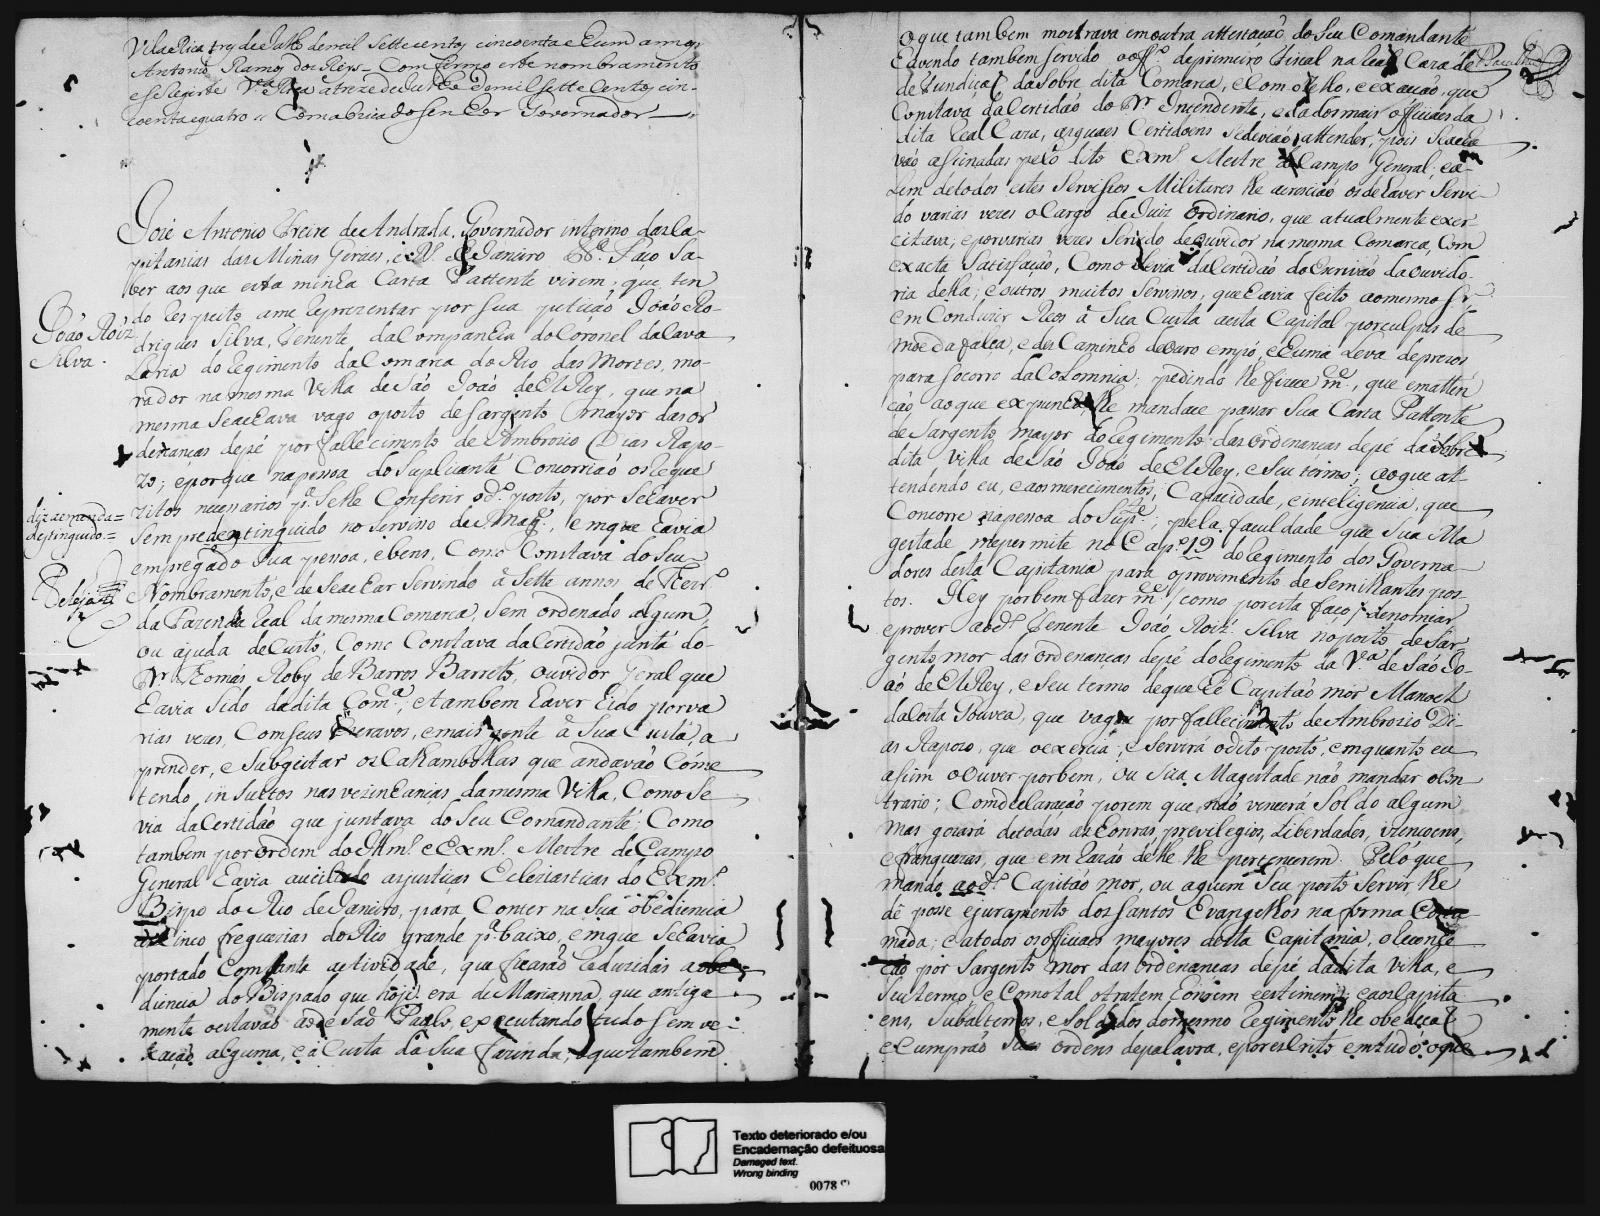 Villa Rica trez de Julho de mil Settecentos cincoenta e hum annos
Antonio Ramos dos Reys = Comfermo este nombramento
e se Registe V.ª Rica a treze de Julho de mil settecentos cin-
coenta e quatro = Com a brica do senhor Governador

Jozé Antonio Freire de Andrada, Governador interino das Ca-
pitanias das Minas Geraes, e R.º de Janeiro &ª. Faço Sa-
ber aos que esta minha Carta Pattente virem, que ten
do respeito a me reprezentar por sua petição João Ro-
João Roiz
Silva.
drigues Silva, Tenente da Companhia do Coronel da Cava
laria do Regimento da Comarca do Rio das Mortes, mo-
rador na mesma Villa de São João de El Rey, que na
mesma se achava vago o posto de Sargento mayor das or
denanças de pé por fallecimento de Ambrozio Dias Rapo-
zo; e porque na pessoa do Suplicante Concorrião os requi
zitos necessarios p.ª se lhe Conferir o d.º posto, por se haver
diz a emenda =
destinguido. =
sempre destinguido no Servisso de S. Mag.e, em que havia
empregado sua pessoa, e bens, Como Constava do seu
Nombramento, e de se achar Servindo á Sette annos de Thezr.º
da Fazenda Real da mesma Comarca, sem ordenado algum,
ou ajuda de custo, Como Constava da Certidão junta do
Dr. Thomás Roby de Barros Barreto, ouvidor Geral que
havia sido da dita Com.ª, e tambem haver hido por va
rias vezes, Com seus Escravos, e mais gente á Sua Custa, a
prender, e Subgeitar os Calhambollas que andavão Come
tendo insultos nas vezinhanças da mesma Villa, Como Se
via da Certidão que juntava do Seu Comandante; Como
tambem por ordem do Illm.º e Exm.º Mestre de Campo
General havia auciliado as justiças Ecleziasticas do Exm.º
Bispo do Rio de Janeiro, para Conter na Sua obediencia
as Cinco freguezias do Rio grande p.ª baixo, em que se havia
portado Com tanta actividade, que ficarão reduzidas a obe-
diencia do Bispado que hoje era de Marianna, que antiga
mente o estavão ao de São Paulo, executando tudo sem ve-
xação alguma, e á Custa da Sua fazenda; o que tambem
o que tambem mostrava em outra attestação do Seu Comandante
havendo tambem servido o off.º de primeiro Fiscal na Real Caza de
de Fundição da sobre dita Comarca, e Com o zello, e exacção, que
Constava da Certidão do Dr. Intendente, e dos mais officiaes da
dita Real Caza, as quaes Certidoens se devião attender, pois se acha
vão asinadas pelo dito Exm.º Mestre de Campo General; e a-
lem de todos estes Servissos Militares lhe acrescião os de haver Servi
do varias vezes o Cargo de Juiz Ordinario, que atualmente exer-
citava; e por varias vezes Servido de ouvidor na mesma Comarca, Com
exacta Satisfação, Como se via da Certidão do Escrivão da ouvido-
ria della; e outros muitos Servissos, que havia feito ao mesmo Sr.
em Conduzir Reos á Sua Custa a esta Capital por culpas de
moeda falça, e des Caminho de ouro em pó, e huma Leva de prezos
para Socorro da Colomnia; pedindo lhe fizece m.ce, que em atten
ção ao que expunha lhe mandace passar Sua Carta Pattente
de Sargento mayor do Regimento das ordenanças de pé da sobre
dita Villa de São João de El Rey, e Seu termo; ao que at-
tendendo eu, e aos merecimentos, Capacidade, e inteligencia, que
Concorre na pessoa do Sup.te, pela faculdade que Sua Ma
gestade me permite no Cap.º 19 do Regimento dos Governa-
dores desta Capitania para o provimento de Semilhantes pos-
tos. Hey por bem fazer m.ce / como por esta faço / de nomiar
e prover ao d.º Tenente João Roiz. Silva no posto de Sar
gento mor das ordenanças de pé do Regimento da V.ª de São Jo-
ão de El Rey, e Seu termo de que he Capitão mor Manoel
da Costa Gouvea, que vagou por fallecimento de Ambrozio Di-
as Rapozo, que o exercia; e Servirá o dito posto, em quanto eu
asim o ouver por bem, ou Sua Magestade não mandar o Con
trario; Com declaração porem que não vencerá Soldo algum
mas gozará de todas as honras, previlegios, liberdades, izencoens,
e franquezas, que em razão delle lhe pertencerem. Pelo que
mando ao d.º Capitão mor, ou a quem Seu posto Servir, lhe
dê posse e juramento dos Santos Evangelhos na forma Costu
mada; e a todos os officiaes mayores desta Capitania, o Conhe
ção por Sargento mor das ordenanças de pé da dita Villa, e
Seu termo, e Como tal o tratem honrem e estimem; e aos Capita
ens, Subalternos, e Soldados do mesmo Regimento lhe obedeção
e Cumprão Suas ordens de palavra, e por escrito em tudo o que

Texto deteriorado e/ou
Encadernação defeituosa
Damaged text.
Wrong binding
0078